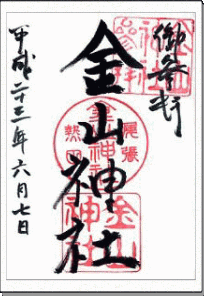 御参拝
金山神社
尾張
熱田
金山神社
金山神社
平成二十三年六月七日